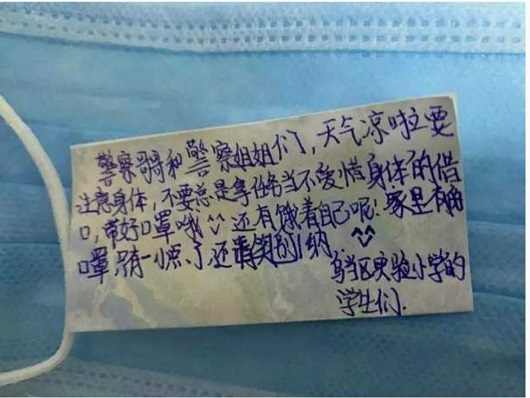 警察哥哥和警察姐姐们，天气凉啦要
注意身体，不要总是拿任务当不爱惜身体的借
口，带好口罩哦^^还有饿着自己呢！家里有的
口罩只有一小点了还请笑纳 ^^
乌当区实验小学的
学生们.